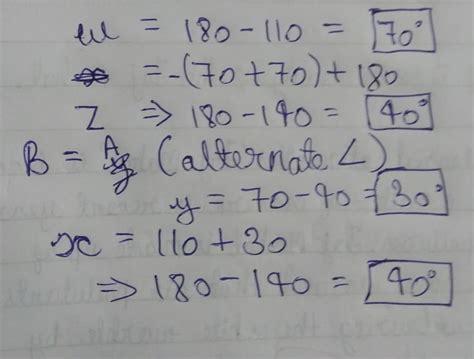 w = 180 - 110 = 70°
= -(70+70)+180
Z ⇒ 180 - 140 = 40°
B = A (alternate ∠)
y = 70 - 40 = 30°
x = 110 + 30
⇒ 180 - 140 = 40°